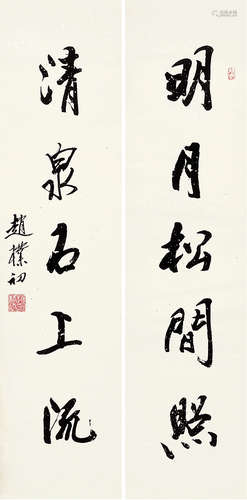 明月松間照
清泉石上流
趙樸初